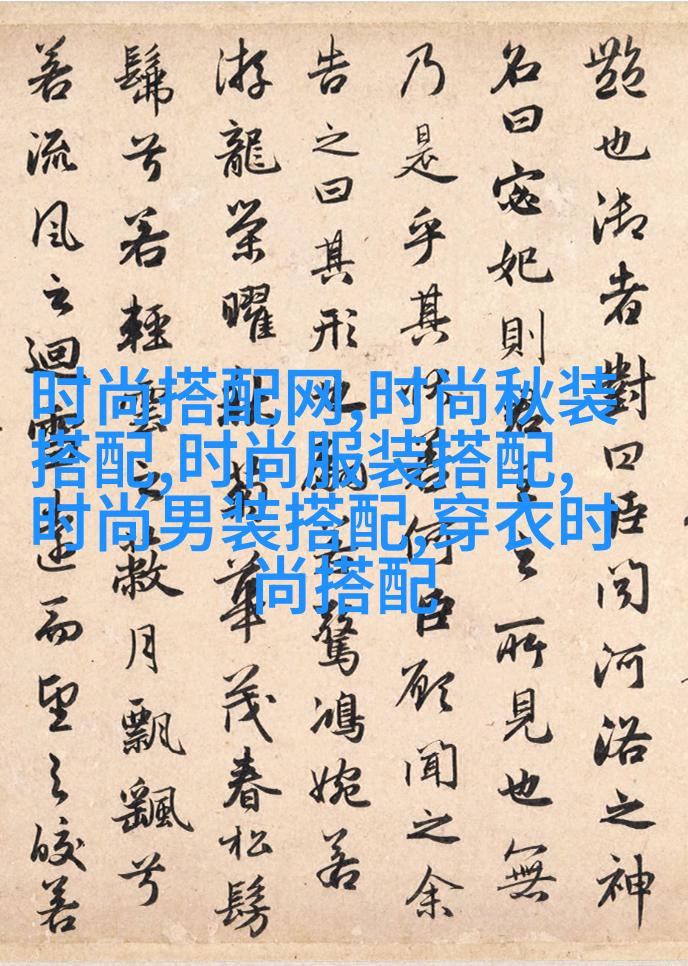 艷也御者對曰臣闻河洛之神
名曰宓妃則君王之所見也無
乃是乎其状若何臣願聞之余
告之曰其形也翩若驚鴻婉若
游龍榮曜秋菊華茂春松髣
髴兮若輕雲之蔽月飄颻兮
若流風之迴雪遠而望之皎若
时尚搭配网,时尚秋装
搭配,时尚服装搭配,
时尚男装搭配,穿衣时
尚搭配